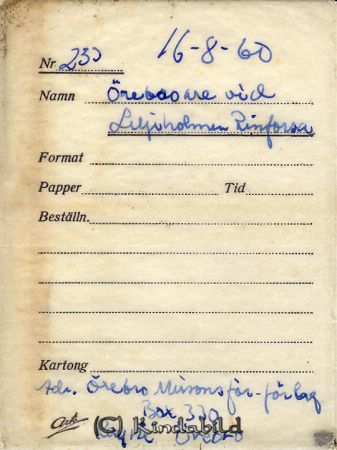 16-8-60
Nr 233
Namn Öreboare vid
Liljeholmen Rimforsa
Format
Papper Tid
Beställn.
Kartong
Adr. Örebro Missonsför-förlag
Box 330
Örebro
Ark
(C) Kindabild